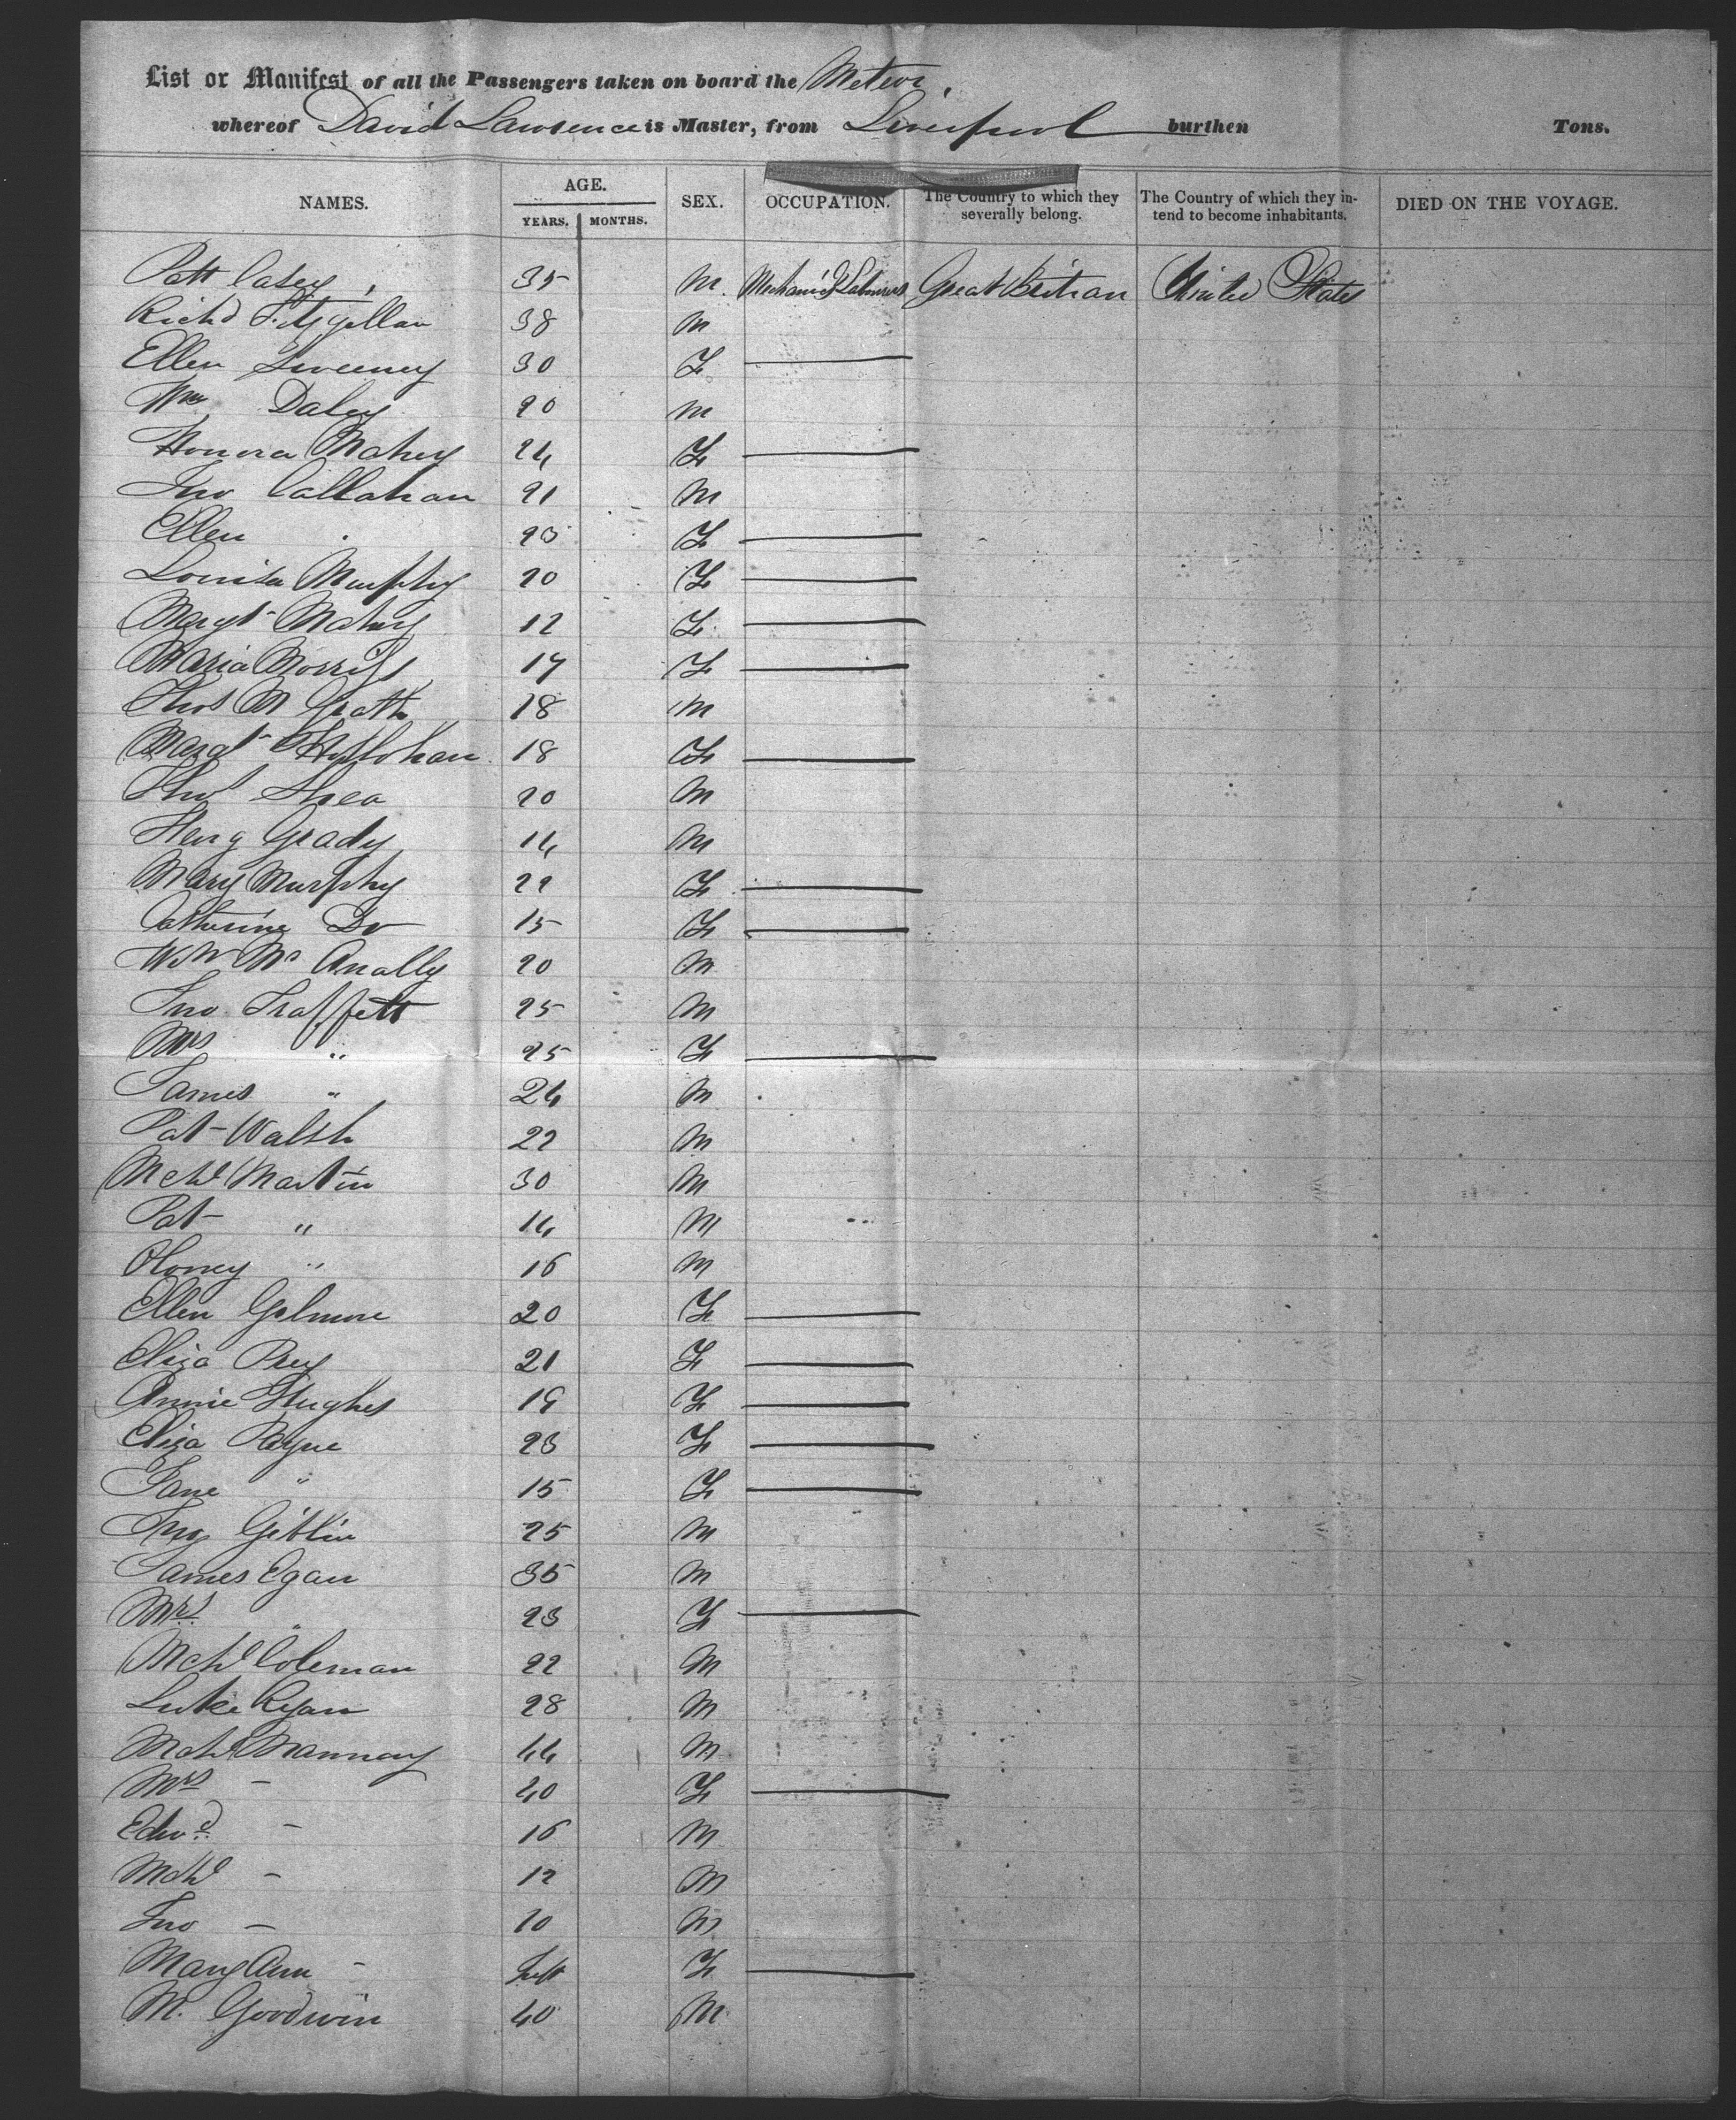 List or Manifest of all the Passengers taken on board the Meteor,
whereof David Lawrence is Master, from Liverpool burthen Tons.
NAMES. AGE. YEARS. MONTHS. SEX. OCCUPATION. The Country to which they severally belong. The Country of which they intend to become inhabitants. DIED ON THE VOYAGE.
Patt Casey, 35 M. Mechanics & Labourers Great Britian United States
Richd 38 M
Ellen Sweeney 30 F
Wm Daley 20 M
Honora Mahey 24 F
Jno Callahan 21 M
Ellen " 23 F
Louisa Murphy 20 F
Margt Mahey 12 F
Maria Morris 17 F
Thos Mc Grath 18 M
Margt 18 F
Thos Shea 20 M
Henry Grady 14 M
Mary Murphy 22 F
Catherine Do 15 F
Wm Mc Anally 20 M
Jno Traffett 25 M
Mrs " 25 F
James " 24 M
Pat Walsh 22 M
Mchl Martin 30 M
Pat " 14 M
" 16 M
Ellen Gilmore 20 F
Eliza Prey 21 F
Annie Hughes 19 F
Eliza Payne 23 F
Jane " 15 F
Jno Giblin 25 M
James Egan 35 M
Mrs. " 23 F
Mchl Coleman 22 M
Luke Ryan 28 M
Mchl Mannay 44 M
Mrs - 40 F
Edwd. - 16 M
Mchl - 12 M
Jno - 10 M
Mary Ann - Inft F
M. Goodwin 40 M